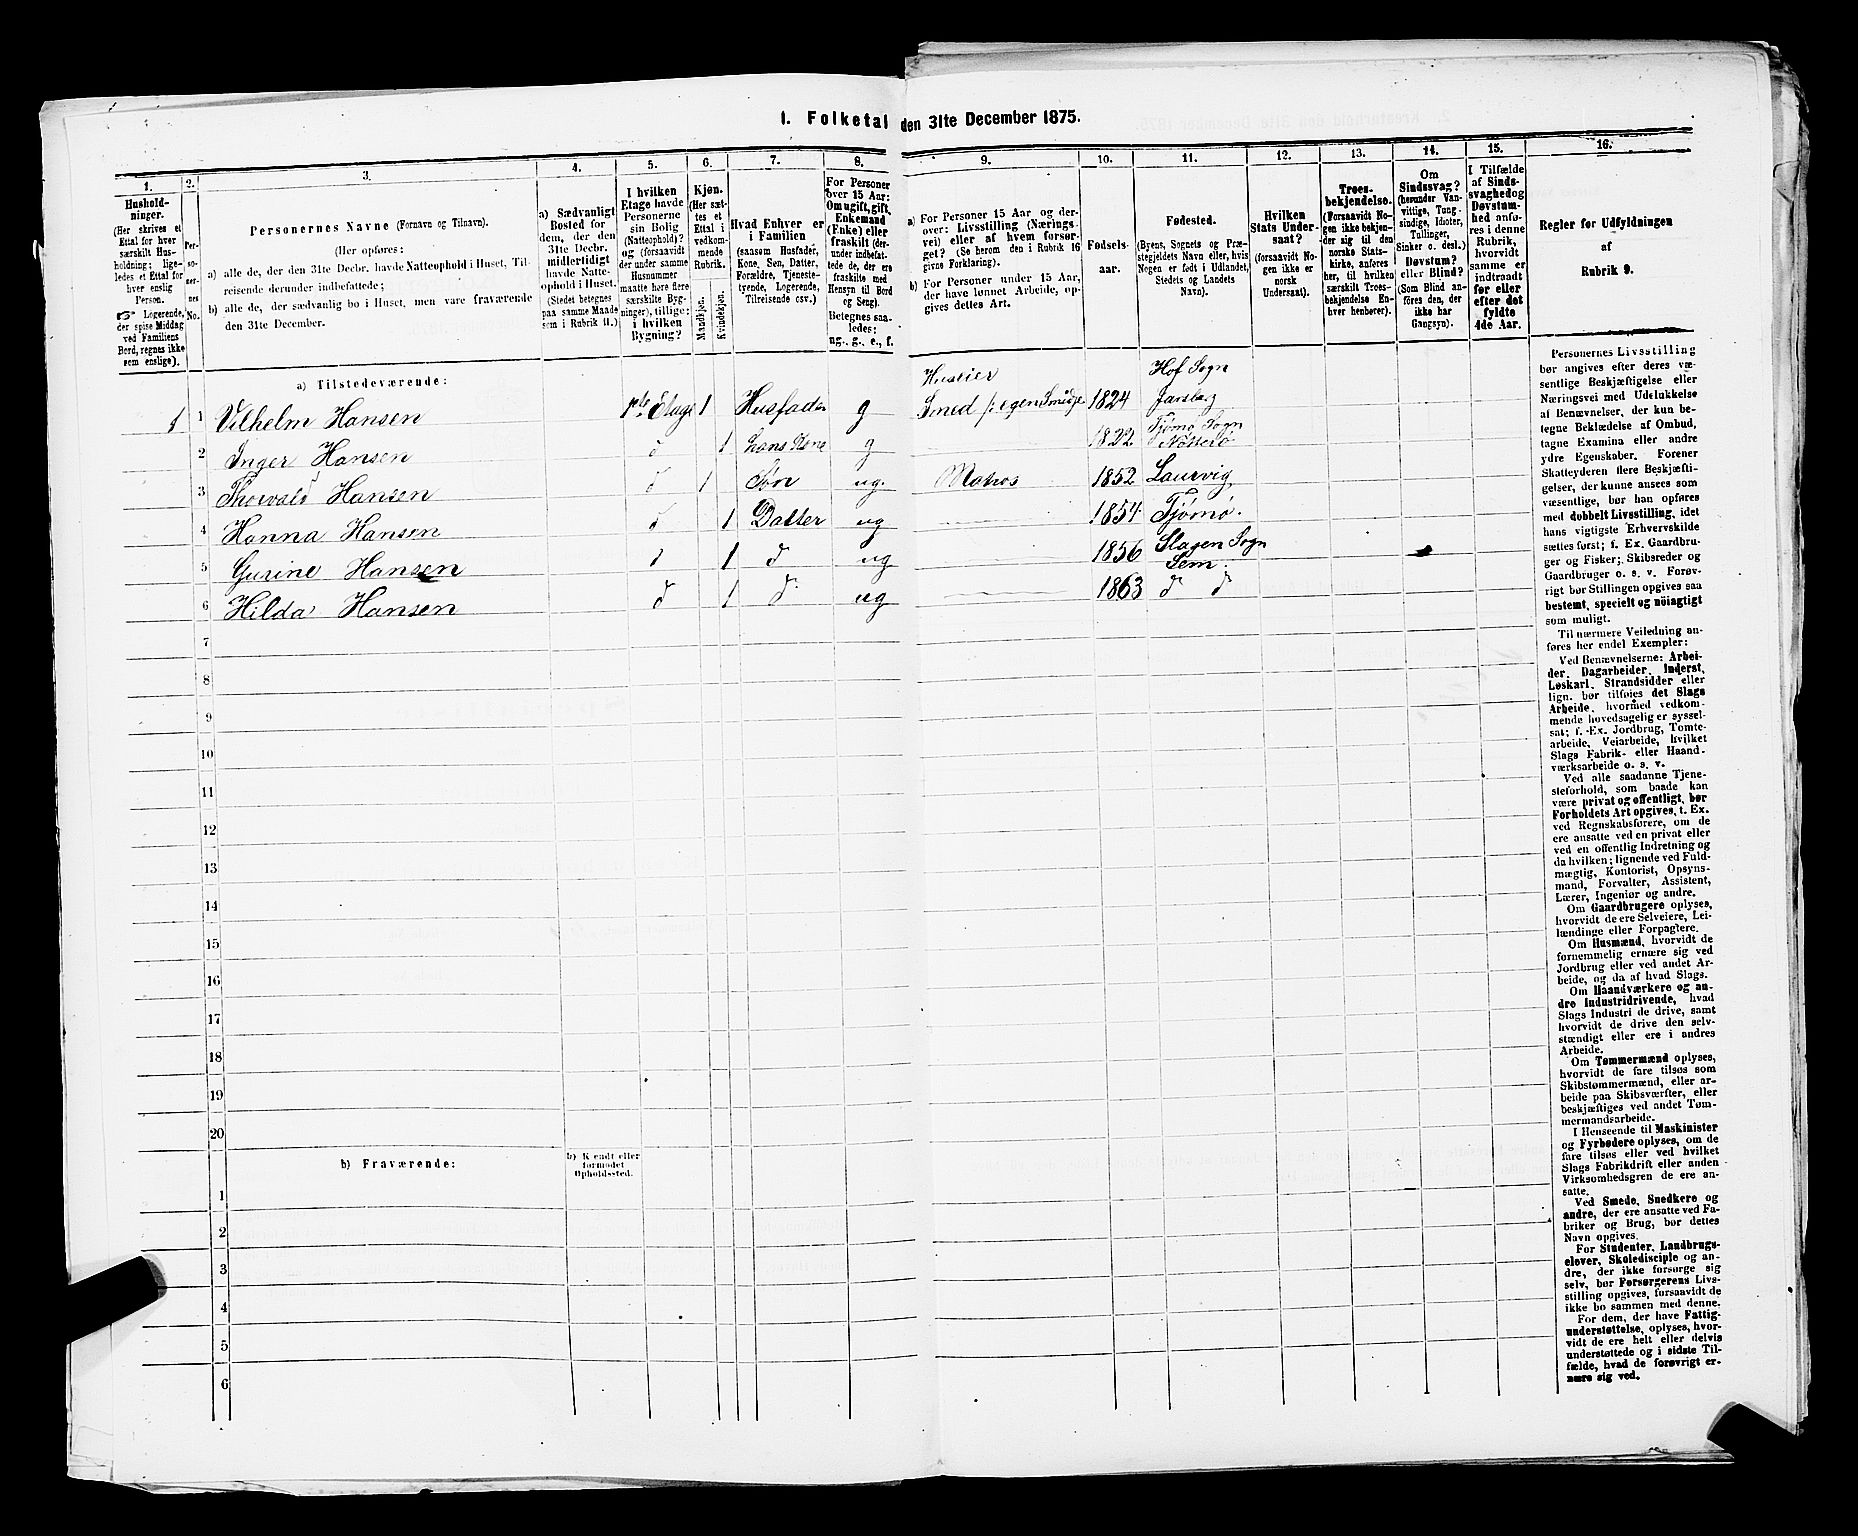 1. Folketal den 31te December 1875.
1. 2. 3. 4. 5. 6. 7. 8. 9. 10. 11. 12. 13. 14. 15. 16.
Hushold-
ninger.
(Her skrives et
Ettal for hver
særskilt Hus-
holdning; lige-
ledes et Ettal for
hver enslig
Person.
☞ Logerende,
der spise Middag
ved Familiens
Bord, regnes ikke
som enslige).
Per-
so-
ner-
nes
No.
Personernes Navne (Fornavn og Tilnavn).
(Her opføres:
a) alle de, der den 31te Decbr. havde Natteophold i Huset, Til-
reisende derunder indbefattede;
b) alle de, der sædvanlig bo i Huset, men vare fraværende
den 31te December.
a) Sædvanligt
Bosted for
dem, der den
31te Decbr.
midlertidigt
havde Natte-
ophold i Huset.
(Stedet betegnes
paa samme Maade
som i Rubrik 11.)
I hvilken
Etage havde
Personerne
sin Bolig
(Natteophold)?
og (forsaavidt
der under samme
Husnummer
maatte høre flere
særskilte Byg-
ninger), tillige:
i hvilken
Bygning?
Kjøn.
(Her sæt-
tes et
Ettal i
vedkom-
mende
Rubrik.
Mandkjøn.
Kvindekjøn.
Hvad Enhver er
i Familien
(saasom Husfader,
Kone, Søn, Datter,
Forældre, Tjeneste-
tyende, Logerende,
Tilreisende osv.)
For Personer
over 15 Aar:
Om ugift, gift,
Enkemand
(Enke) eller
fraskilt (der-
under indbefat-
tede de, der ere
fraskilte med
Hensyn til Bord
og Seng).
Betegnes saa-
ledes:
ug., g., e., f.
a) For Personer 15 Aar og der-
over: Livsstilling (Nærings-
vei) eller af hvem forsør-
get? (Se herom den i Rubrik 16
givne Forklaring).
b) For Personer under 15 Aar,
der have lønnet Arbeide, op-
gives dettes Art.
Fødsels-
aar.
Fødested.
(Byens, Sognets og Præ-
stegjeldets Navn eller, hvis
Nogen er født i Udlandet,
Stedets og Landets
Navn).
Hvilken
Stats Under-
saat?
(forsaavidt No-
gen ikke er
norsk
Undersaat).
Troes-
bekjendelse.
(Forsaavidt No-
gen ikke bekjen-
der sig til den
norske Stats-
kirke, anføres
her, til hvilken
særskilt Troes-
bekjendelse En-
hver henhører).
Om
Sindssvag?
(herunder Van-
vittige, Tung-
sindige, Idioter,
Tullinger,
Sinker o. desl.)
Døvstum?
eller Blind?
(Som Blind an-
føres den, der
ikke har
Gangsyn).
I Tilfælde
af Sinds-
svaghed og
Døvstum-
hed anfø-
res i denne
Rubrik,
hvorvidt
samme er
indtraadt
før eller
efter det
fyldte
4de Aar.
Regler for Udfyldningen
af
Rubrik 9.
a) Tilstedeværende:
1 1 Vilhelm Hansen 1ste Etage 1 Husfader g Huseier Smed egen Smidje 1824 Hof Sogn Jarlsberg
2 Inger Hansen d 1 hans Kone g 1822 Tjømø Sogn Nøtterø
3 Thorvald Hansen d 1 Søn ug. Matros 1852 Laurvig
4 Hanna Hansen d 1 Datter ug 1854 Tjømø.
5 Gurine Hansen d 1 d ug 1856 Slagen Sogn Sem.
6 Hilda Hansen d 1 d. ug 1863 d d
7
8
9
10
11
12
13
14
15
16
17
18
19
20
b) Fraværende:
b) Kjendt eller
formodet
Opholdssted.
1
2
3
4
5
6
Personernes Livsstilling
bør angives efter deres væ-
sentlige Beskjæftigelse eller
Næringsvei med Udelukkelse
af Benævnelser, der kun be-
tegne Beklædelse af Ombud,
tagne Examina eller andre
ydre Egenskaber. Forener
Skatteyderen flere Beskjæfti-
gelser, der kunne ansees som
væsentlige, bør han opføres
med dobbelt Livsstilling, idet
hans vigtigste Erhvervskilde
sættes først; f. Ex. Gaardbru-
ger og Fisker; Skibsreder og
Gaardbruger o. s. v. Forøv-
rigt bør Stillingen opgives saa
bestemt, specielt og nöiagtigt
som muligt.
Til nærmere Veiledning an-
føres her endel Exempler:
Ved Benævnelserne: Arbei-
der, Dagarbeider, Inderst,
Løskarl, Strandsidder eller
lign. bør tilføies det Slags
Arbeide, hvormed vedkom-
mende hovedsagelig er syssel-
sat; f. Ex. Jordbrug, Tomte-
arbeide, Veiarbeide, hvilket
Slags Fabrik- eller Haand-
værksarbeide o. s. v.
Ved alle saadanne Tjene-
steforhold, som baade kan
være privat og offentligt, bør
Forholdets Art opgives, t. Ex.
ved Regnskabsførere, om de
ere ansatte ved en privat eller
ved en offentlig Indretning og
da hvilken; lignende ved Fuld-
mægtig, Kontorist, Opsyns-
mand, Forvalter, Assistent,
Lærer, Ingeniør og andre.
Om Gaardbrugere oplyses,
hvorvidt de ere Selveiere, Lei-
lændinge eller Forpagtere.
Om Husmænd, hvorvidt de
fornemmelig ernære sig ved
Jordbrug eller ved andet Ar-
beide, og da af hvad Slags.
Om Haandværkere og an-
dre Industridrivende, hvad
Slags Industri de drive, samt
hvorvidt de drive den selv-
stændigt eller ere i andres
Arbeide.
Om Tømmermænd oplyses,
hvorvidt de fare tilsøs som
Skibstømmermænd, eller ar-
beide paa Skibsværfter, eller
beskjæftiges ved andet Tøm-
mermandsarbeide.
I Henseende til Maskinister
og Fyrbødere oplyses, om de
fare tilsøs eller ved hvilket
Slags Fabrikdrift eller anden
Virksomhedsgren de ere an-
satte.
Ved Smede, Snedkere og
andre, der ere ansatte ved Fa-
briker og Brug, bør dettes
Navn opgives.
For Studenter, Landbrugs-
elever, Skoledisciple og an-
dre, der ikke forsørge sig
selv, bør Forsørgerens Livs-
stilling opgives, forsaavidt de
ikke bo sammen med denne.
For dem, der have Fattig-
understøttelse, oplyses, hvor-
vidt de ere helt eller delvis
understøttede og i sidste Til-
fælde, hvad de forøvrigt er-
nære sig ved.